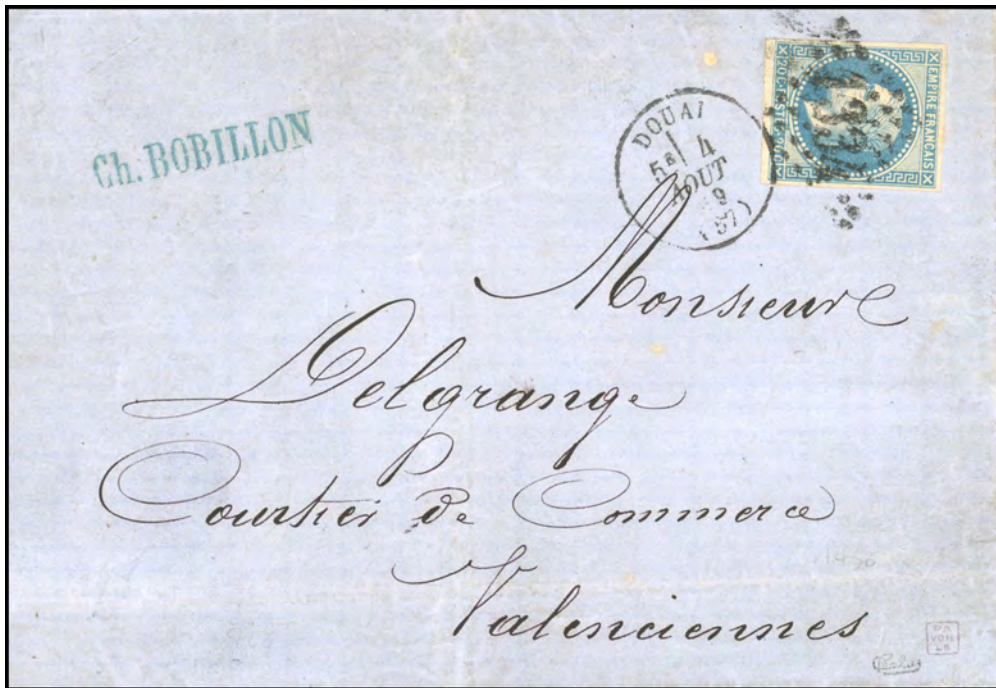 Ch. BOBILLON
DOUAI
5E 4
AOUT
9
(57)
EMPIRE FRANCAIS
20 C POSTES 20 C
Monsieur
Delgrange
Courtier de Commerce
Valenciennes